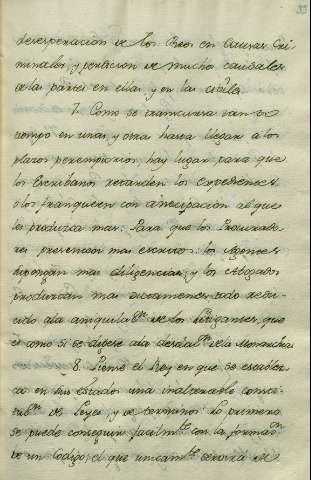 33
desesperacion de los Reos en Causas Cri-
minales, y perdicion de muchos caudales
de las partes en ellas, y en las civiles.
7. Como se transcurra tan to
tiempo en unas, y otras hasta llegar a los
plazos perentorios, hay lugar para que
los Escribanos retarden los expedientes,
o los franqueen con anticipación al que
les produzca mas: Para que los Procurado-
res presenten mas escritos: los Agentes
supongan mas diligencias; y los Abogados
produzcan mas dictamenes, todo redu-
cido a la aniquilaon de los litigantes, que
es como si se dijese a la desolaon de la Monarchia
8. Quiere el Rey en que se establez-
ca en sus Estados una inalterable consti-
tuon de Leyes, y de terminos: lo primero
se puede conseguir facilmte con la formaon
de un Codigo, el que unicamte servirá de